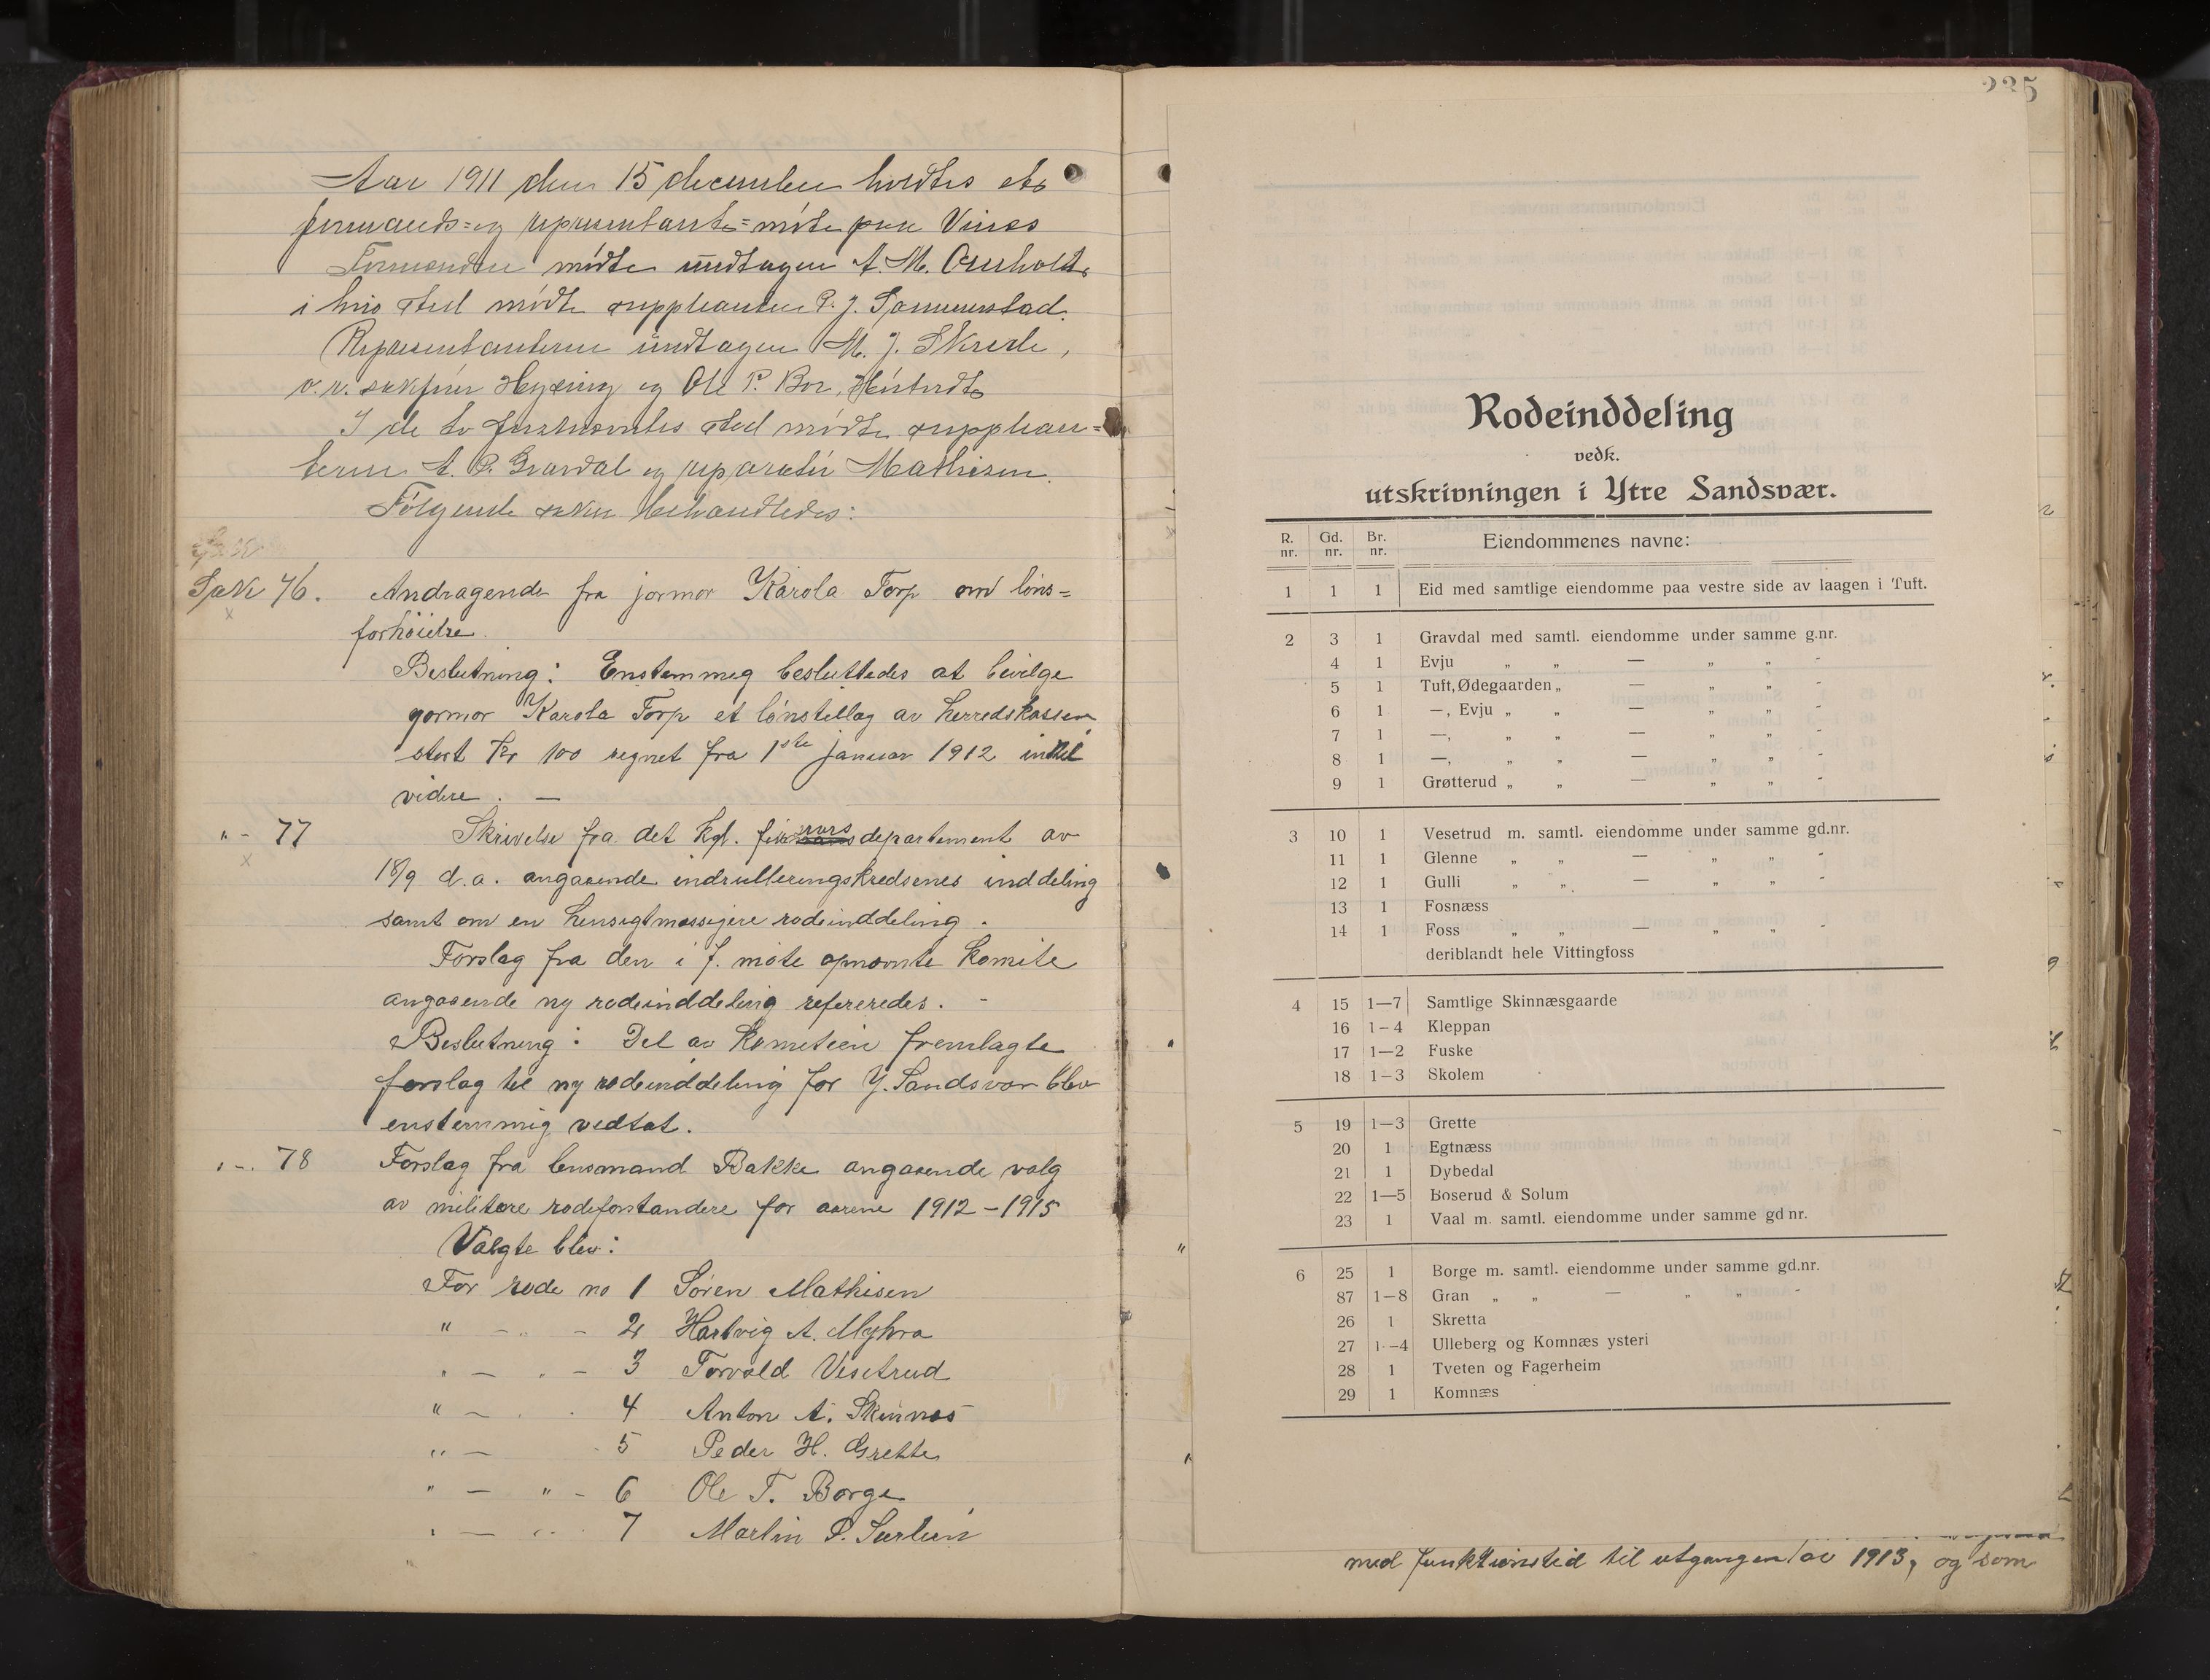 Aar 1911 den 15 december holdtes et
formands= og repræsentant=møte paa Vinæs
Formænden møtte undtagen A. M. Omholt,
i hvis sted møtte suppleanten P. J. Sommerstad.
Repræsentanterne undtagen M. J. Skrede,
o.r. sakfører Heyxing og Ole P. Bor,
I de to førstnævntes sted møtte supplean=
terne A. P. Gravdal og reparatør Mathisen.
Følgende saker behandledes:
Sak 76. Andragende fra jormor Karola Torp om løns=
forhøielse.
Beslutning: Enstemmig besluttedes at bevilge
gormor Karola Torp et lønstillæg av herredskassen
stort Kr 100 regnet fra 1ste januar 1912 indtil
videre. —
" - 77 Skrivelse fra det kgl. forsvarsdepartement av
18/9 d.a. angaaende indrulleringskredsenes inddeling
samt om en hensigtmæssigere rodeinddeling.
Forslag fra den i f. møte opnævnte komite
angaaende ny rodeinddeling refereredes. -
Beslutning: Det av komiteen fremlagte
forslag til ny rodeinddeling for Y. Sandsvær blev
enstemmig vedtat.
" - 78 Forslag fra lensmand Bakke angaaende valg
av militære rodeforstandere for aarene 1912-1915
Valgte blev:
For rode no 1 Søren Mathisen
" - " - 2 Hartvig A. Myhra
" - " - 3 Torvald Vesetrud
" - " - 4 Anton A. Skinnæs
" - 5 Peder H. Grette
" - " - 6 Ole T. Borge
" - " - 7 Martin P.
235
Rodeinddeling
vedk.
utskrivningen i Ytre Sandsvær.
R. nr. Gd. nr. Br. nr. Eiendommenes navne:
1 1 1 Eid med samtlige eiendomme paa vestre side av laagen i Tuft.
2 3 1 Gravdal med samtl. eiendomme under samme g.nr.
4 1 Evju „ „ — „ „ -
5 1 Tuft, Ødegaarden „ — „ „ -
6 1 —, Evju „ „ — „ „ -
7 1 —, „ „ — „ „ -
8 1 —, „ „ — „ „ -
9 1 Grøtterud „ „ — „ „ -
3 10 1 Vesetrud m. samtl. eiendomme under samme gd.nr.
11 1 Glenne „ „ — „ „ -
12 1 Gulli „ „ — „ „ -
13 1 Fosnæss
14 1 Foss „ „ — „ „ -
deriblandt hele Vittingfoss
4 15 1—7 Samtlige Skinnæsgaarde
16 1-4 Kleppan
17 1—2 Fuske
18 1-3 Skolem
5 19 1—3 Grette
20 1 Egtnæss
21 1 Dybedal
22 1—5 Boserud & Solum
23 1 Vaal m. samtl. eiendomme under samme gd nr.
6 25 1 Borge m. samtl. eiendomme under samme gd.nr.
87 1—8 Gran „ „ — „ „ -
26 1 Skretta
27 1-4 Ulleberg og Komnæs ysteri
28 1 Tveten og Fagerheim
29 1 Komnæs
med funktionstid til utgangen av 1913, og som